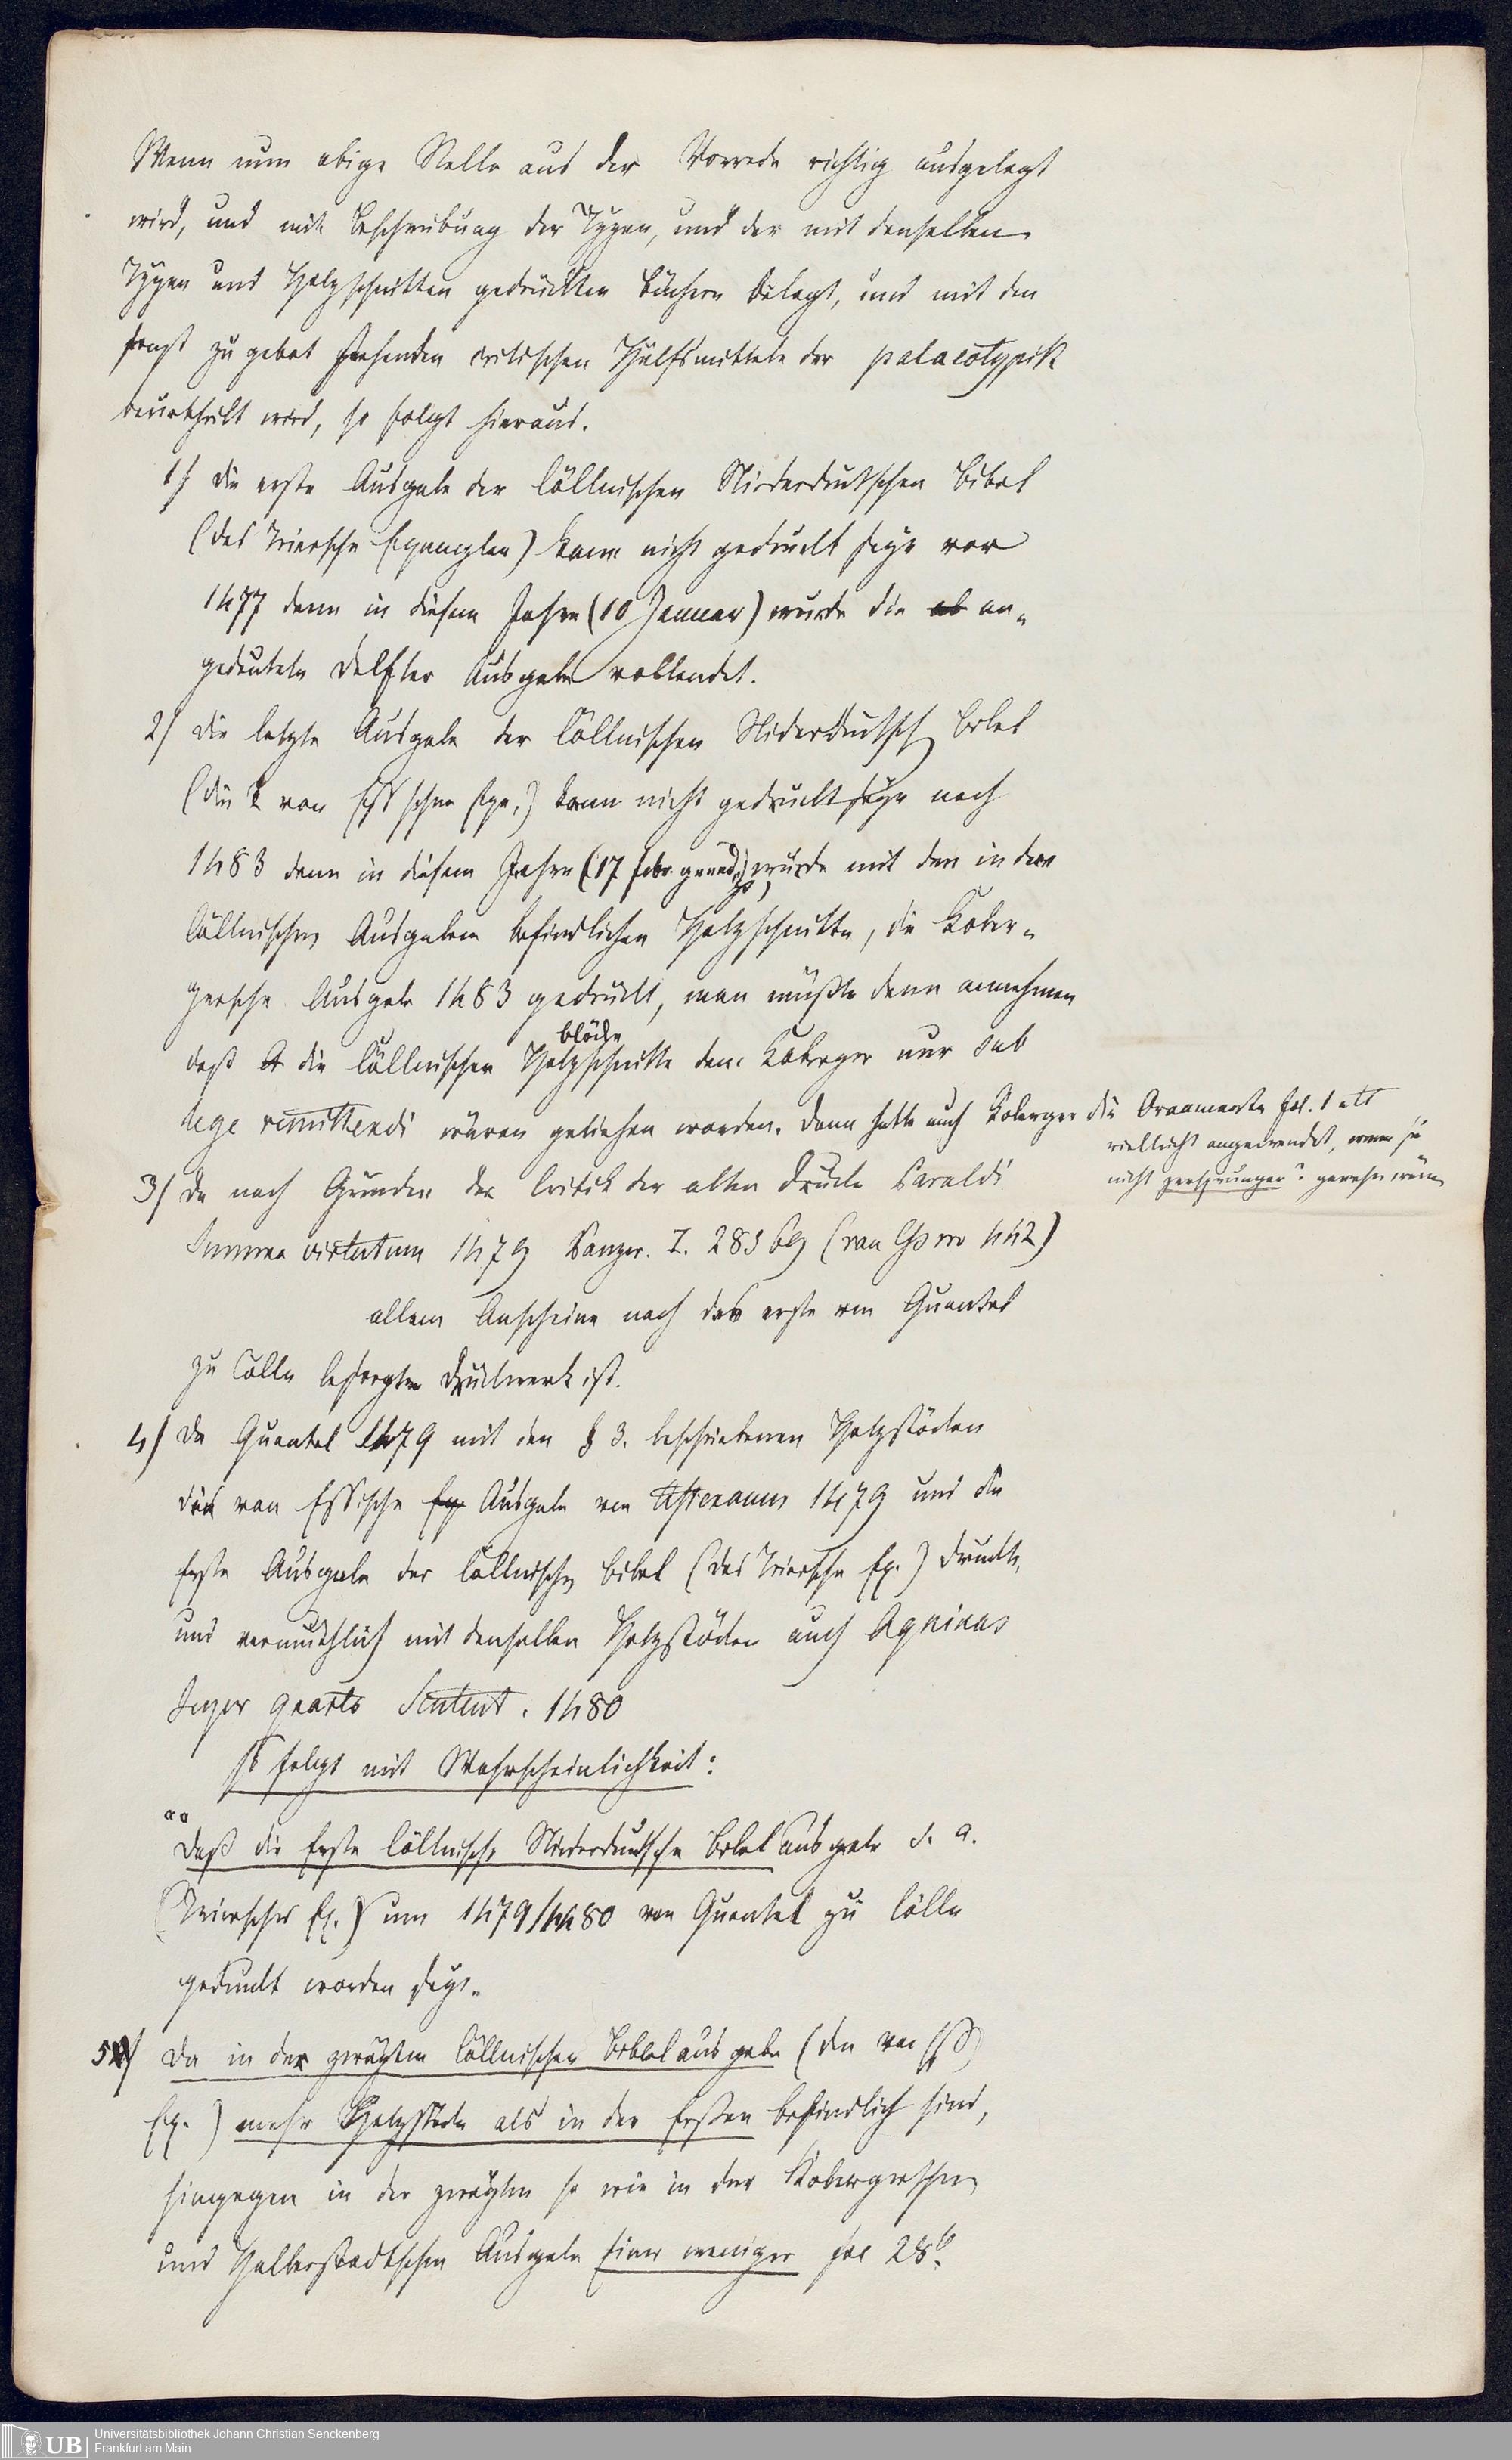 Wenn nun obige Stelle aus der Vorrede richtig ausgelegt
wird, und mit Beschreibung der Typen, und der mit denselben
Typen und Holzschnitten gedruckten Büchern belegt, und mit den
sonst zu gebot stehenden critischen Hülfsmitteln der palaeotypik
beurtheilt wird, so folgt hieraus.
1) die erste Ausgabe der Cöllnischen Niederdeutschen Bibel
(das Triersche Exemplar) kann nicht gedruckt seyn vor
1477 denn in diesem Jahre (10 Januar) wurde die ab an-
gedeutete Delfter Ausgabe vollendet.
2) die letzte Ausgabe der Cöllnischen Niderdeutsch Bibel
(die von Eß'sche Exp.) kann nicht gedruckt seyn nach
1483 denn in diesem Jahre (17 febr. wurde mit den in den
Cöllnischen Ausgaben befindlichen Holzschnitte, die Kober-
gersche Ausgabe 1483 gedruckt, man müßte denn annehmen
blöcke
daß die Cöllnischen Holzschnitte dem Koberger nur sub
lege remittendi wären geliehen worden. dann hätte auch Koberger die Ornamente fol. 1 etc
vielleicht angewendet, wenn sie
nicht zersprungen? gewesen wären
3) Da nach Gründen der Critik der alten Drucke Paraldi
Summa virtutum 1479 Panzer. I. 283 69 (van Eß no 442)
allem Anscheine nach das erste von Quentel
zu Cölln besorgte Druckwerk ist.
4) Da Quentel 1479 mit den § 3. beschriebenen Holzstöcken
die van Essische Ausgabe von Astexanus 1479 und die
Erste Ausgabe der Cöllnischen Bibel (das Triersche Ex.) druckte,
und vermuthlich mit denselben Holzstöcken auch Aquinas
super quarto Sentent. 1480
so folgt mit Wahrscheinlichkeit:
aa
Daß die Erste Cöllnische Niederdeutsche Bibelausgabe s. a.
(Triersches Ex.) um 1479/1480 von Quentel zu Cölln
gedruckt worden sey.
5) Da in der zweyten Cöllnischen Bibelausgabe (den van Eß
Ex.) mehr Holzstöcke als in der Ersten befindlich sind,
hingegen in der zweyten so wie in der Kobergerschen
und Halberstadtschen Ausgabe Einer weniger fol 28b.
Universitätsbibliothek Johann Christian Senckenberg
Frankfurt am Main
UB